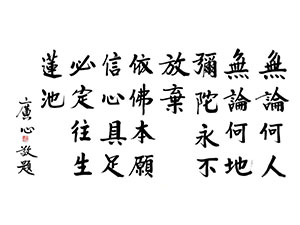 無論何人
無論何地
彌陀永不
放棄
依佛本願
信心具足
必定往生
蓮池
廣心敬題